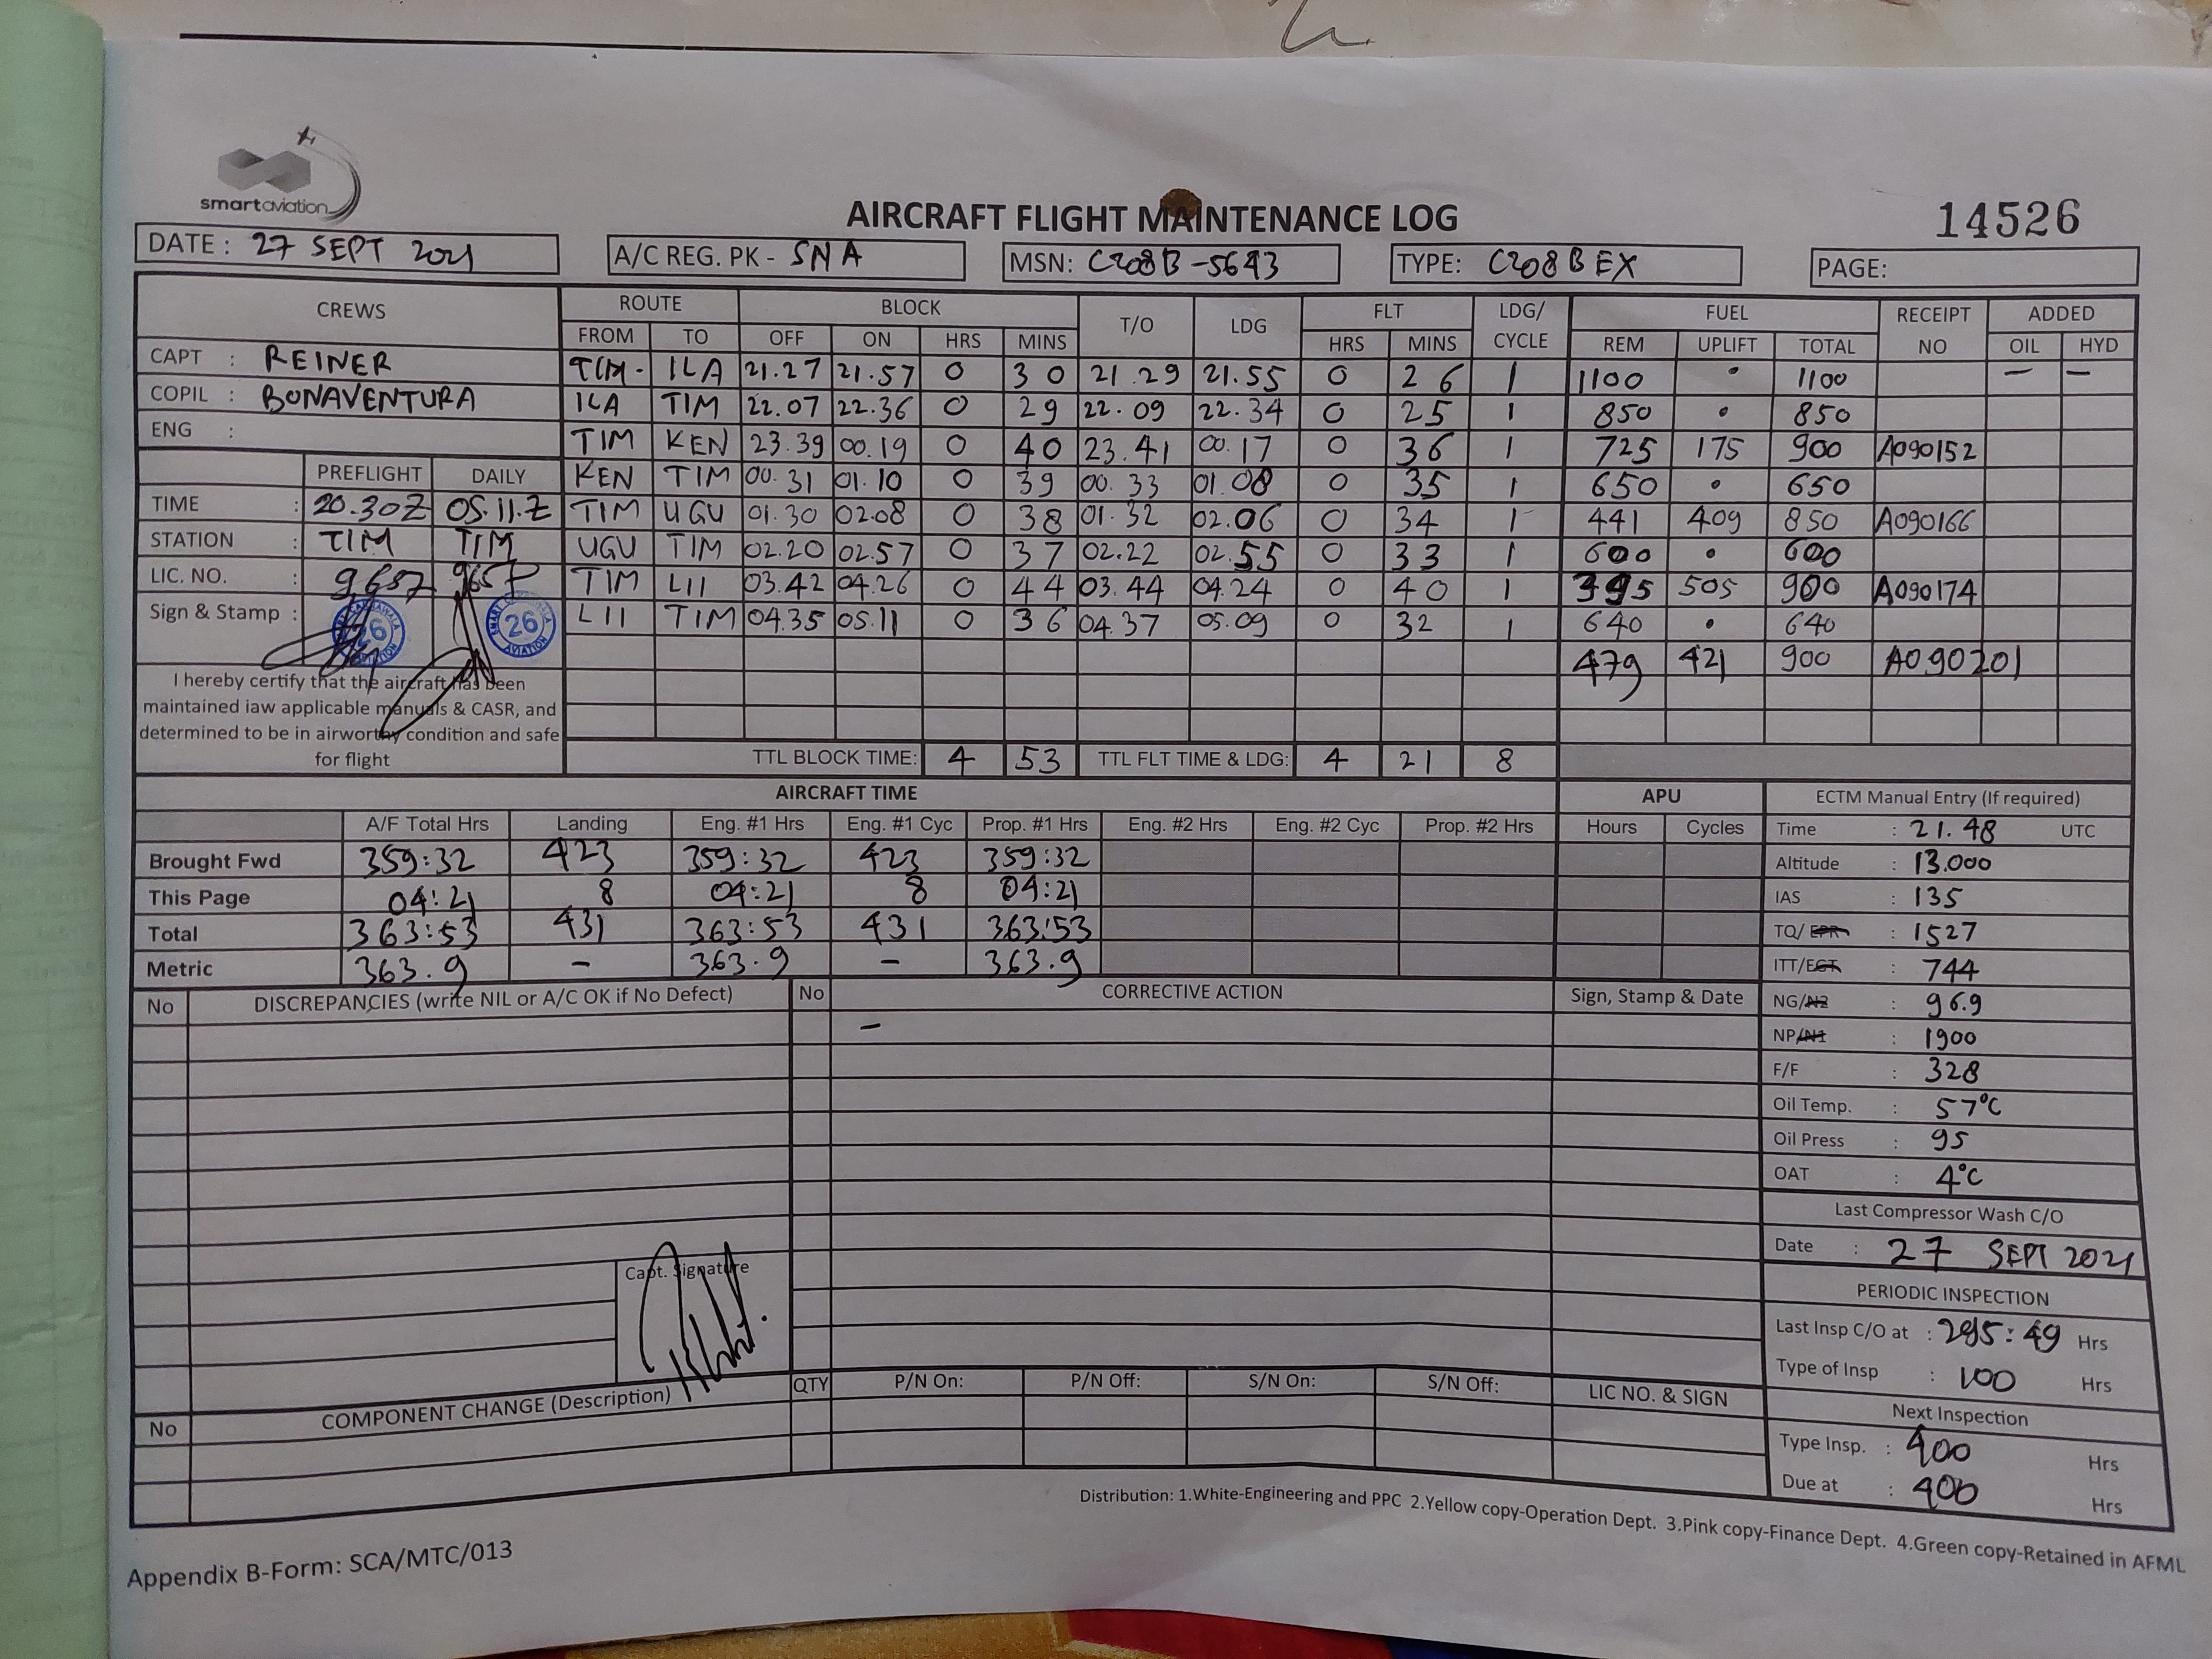 smartaviation
AIRCRAFT FLIGHT MAINTENANCE LOG
14526
DATE: 27 SEPT 2021
A/C REG. PK - SNA
MSN: C208B-5643
TYPE: C208B EX
PAGE:
CREWS ROUTE BLOCK T/O LDG FLT LDG/CYCLE FUEL RECEIPT NO ADDED
FROM TO OFF ON HRS MINS HRS MINS REM UPLIFT TOTAL OIL HYD
CAPT : REINER
COPIL : BONAVENTURA
ENG :
TIM - ILA 21.27 21.57 0 30 21.29 21.55 0 26 1 1100 • 1100 — —
ILA TIM 22.07 22.36 0 29 22.09 22.34 0 25 1 850 • 850
TIM KEN 23.39 00.19 0 40 23.41 00.17 0 36 1 725 175 900 A090152
KEN TIM 00.31 01.10 0 39 00.33 01.08 0 35 1 650 • 650
TIM UGU 01.30 02.08 0 38 01.32 02.06 0 34 1 441 409 850 A090166
UGU TIM 02.20 02.57 0 37 02.22 02.55 0 33 1 600 • 600
TIM LII 03.42 04.26 0 44 03.44 04.24 0 40 1 395 505 900 A090174
LII TIM 04.35 05.11 0 36 04.37 05.09 0 32 1 640 • 640
479 421 900 A090201
PREFLIGHT DAILY
TIME : 20.30Z 05.11.Z
STATION : TIM TIM
LIC. NO. : 9657 9657
Sign & Stamp : 26 26
AVIATION
I hereby certify that the aircraft has been
maintained iaw applicable manuals & CASR, and
determined to be in airworthy condition and safe
for flight
TTL BLOCK TIME: 4 53 TTL FLT TIME & LDG: 4 21 8
AIRCRAFT TIME APU
A/F Total Hrs Landing Eng. #1 Hrs Eng. #1 Cyc Prop. #1 Hrs Eng. #2 Hrs Eng. #2 Cyc Prop. #2 Hrs Hours Cycles
Brought Fwd 359:32 423 359:32 423 359:32
This Page 04:21 8 04:21 8 04:21
Total 363:53 431 363:53 431 363:53
Metric 363.9 - 363.9 - 363.9
ECTM Manual Entry (If required)
Time : 21.48 UTC
Altitude : 13.000
IAS : 135
TQ/EPR : 1527
ITT/EGT : 744
NG/N2 : 96.9
NP/N1 : 1900
F/F : 328
Oil Temp. : 57°C
Oil Press : 95
OAT : 4°C
Last Compressor Wash C/O
Date : 27 SEPT 2021
PERIODIC INSPECTION
Last Insp C/O at : 295:49 Hrs
Type of Insp : 100 Hrs
Next Inspection
Type Insp. : 400 Hrs
Due at : 400 Hrs
No DISCREPANCIES (write NIL or A/C OK if No Defect) No CORRECTIVE ACTION Sign, Stamp & Date
-
Capt. Signature
No COMPONENT CHANGE (Description) QTY P/N On: P/N Off: S/N On: S/N Off: LIC NO. & SIGN
Distribution: 1.White-Engineering and PPC 2.Yellow copy-Operation Dept. 3.Pink copy-Finance Dept. 4.Green copy-Retained in AFML
Appendix B-Form: SCA/MTC/013